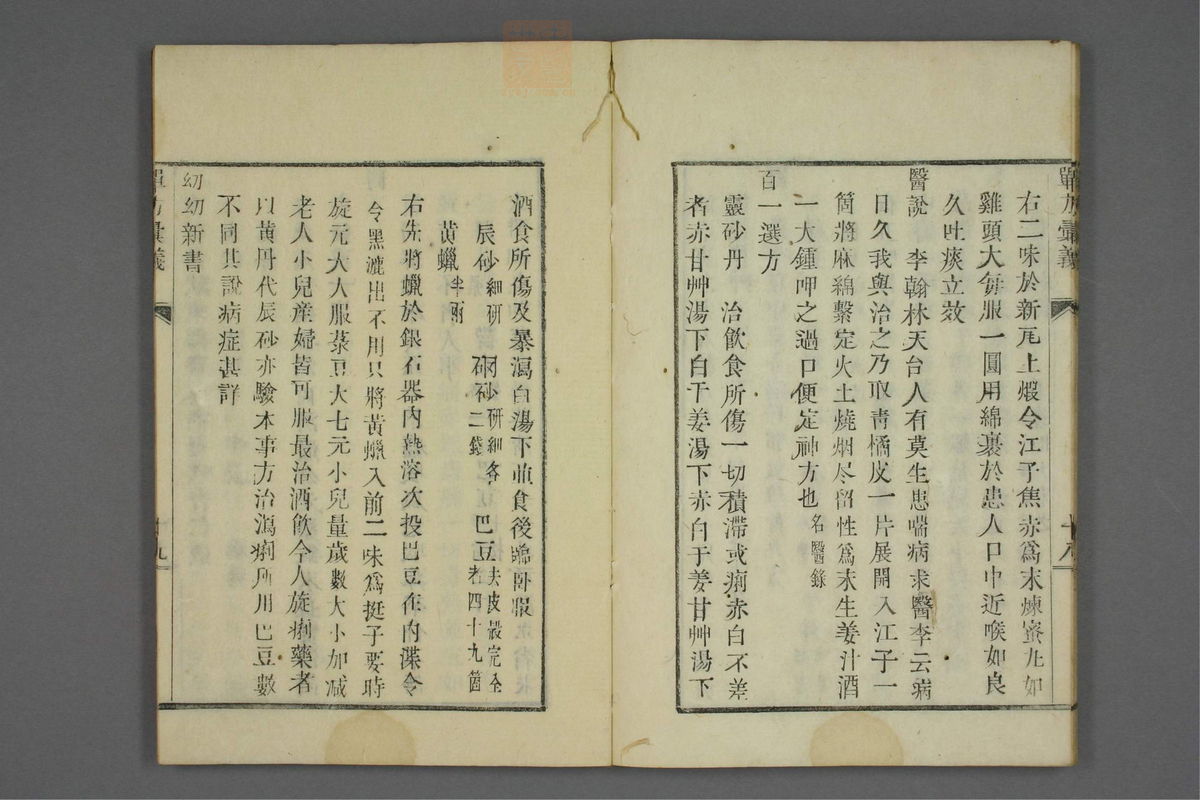 單方彙義
十八
右二味於新瓦上煆令江子焦赤爲末煉蜜丸如
雞頭大每服一圓用綿裹於患人口中近喉如良
久吐痰立效
醫說　李翰林天台人有莫生患喘病求醫李云病
日久我與治之乃取靑橘皮一片展開入江子一
箇將麻綿繫定火土燒烟尽留性爲末生姜汁酒
一大鍾呷之過口便定神方也名醫錄
百一選方
靈砂丹　治飮食所傷一切積滯或痢赤白不差
者赤甘艸湯下白干姜湯下赤白干姜甘艸湯下
酒食所傷及暴瀉白湯下並食後臨卧服
辰砂細研　硇砂研細各二錢　巴豆去皮最完全者四十九箇
黄蠟半兩
右先將蠟於銀石器內熱溶次投巴豆在內渫令
令黑漉出不用只將黃蠟入前二味爲挺子要時
旋元大人服菉豆大七元小兒量歲數大小加减
老人小兒産婦皆可服最治酒飮令人旋痢藥者
以黄丹代辰砂亦驗本事方治瀉痢所用巴豆數
不同其說病症甚詳
幼幼新書
單方彙義
十九